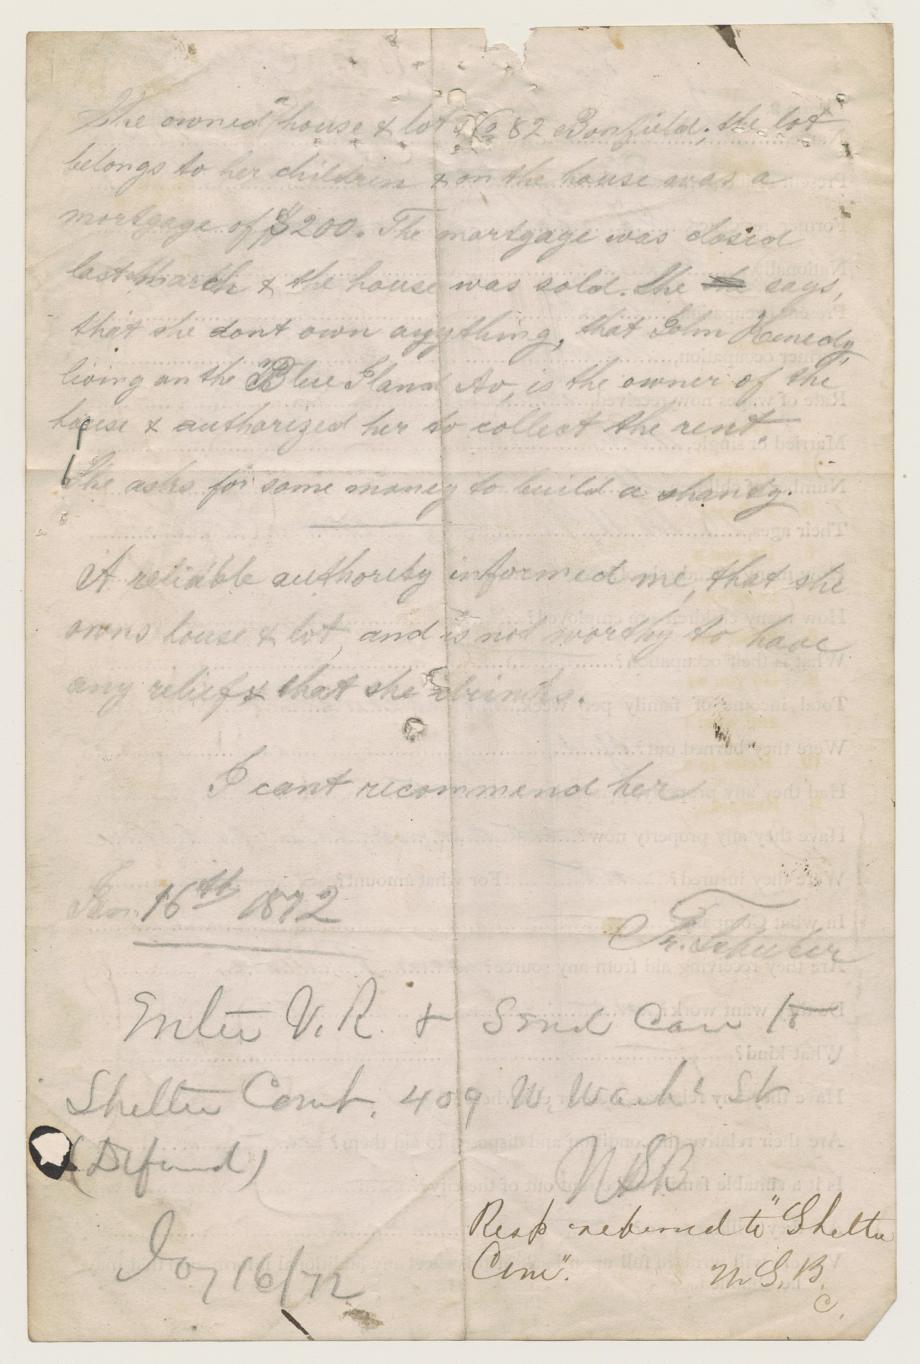 She owned house & lot No 82 Bonfield, the lot
belongs to her children & on the house was a
mortgage of $200. The mortgage was closed
last March & the house was sold. She says,
that she dont own anything, that John Kenedy,
living on the Blue Iland Av, is the owner of the
house & authorized her to collect the rent.
She asks for some money to build a shandy.
A reliable authority informed me, that she
owns house & lot, and is not worthy to have
any relief & that she drinks.
I cant recommend her
Jan. 16th 1872
Enter V. R. & Send Case to
Shelter Comt. 409 W. Wash St
Jay 16/72
Resp referred to "Shelter
Com".